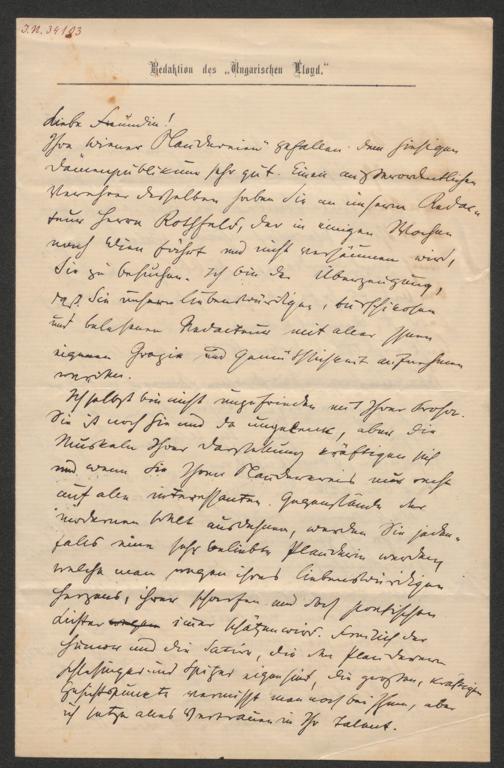 J.N. 34103
Redaktion des „Ungarischen Lloyd."
Liebe Freundin!
Ihre Wiener „Plaudereien" gefallen dem hiesigen
Damenpublikum sehr gut. Einen außerordentlichen
Verehrer derselben haben Sie an unserm Redac-
teur Herrn Rothfeld, der in einigen Wochen
nach Wien fährt und nicht versäumen wird,
Sie zu besuchen. Ich bin der Überzeugung,
daß Sie unsern liebenswürdigen, burschikosen
und belesenen Redacteur mit aller Ihnen
eigenen Grazie und Gemüthlichkeit aufnehmen
werden.
Ich selbst bin nicht unzufrieden mit Ihrer Prosa.
Sie ist noch hie und da ungelenk, aber die
Muskeln Ihrer Darstellung kräftigen sich
und wenn Sie Ihre Plaudereien nur recht
auf alle interessanten Gegenstände der
modernen Welt ausdehnen, werden Sie jeden-
falls eine sehr beliebte Plauderin werden,
welche man wegen ihres liebenswürdigen
Herzens, ihrer scharfen und doch poetischen
Lichter imer schätzen wird. Freilich der
Humor und die Satire, die den Plauderern
Schlesinger und Spitzer eigen sind, die großen, kräftigen
Gesichtspunkte vermisst man noch bei Ihnen, aber
ich setze alles Vertrauen in Ihr Talent.